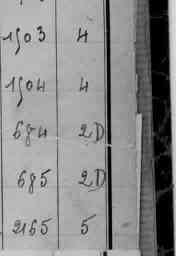 1903 4
1904 4
684 2D
685 2D
2165 5